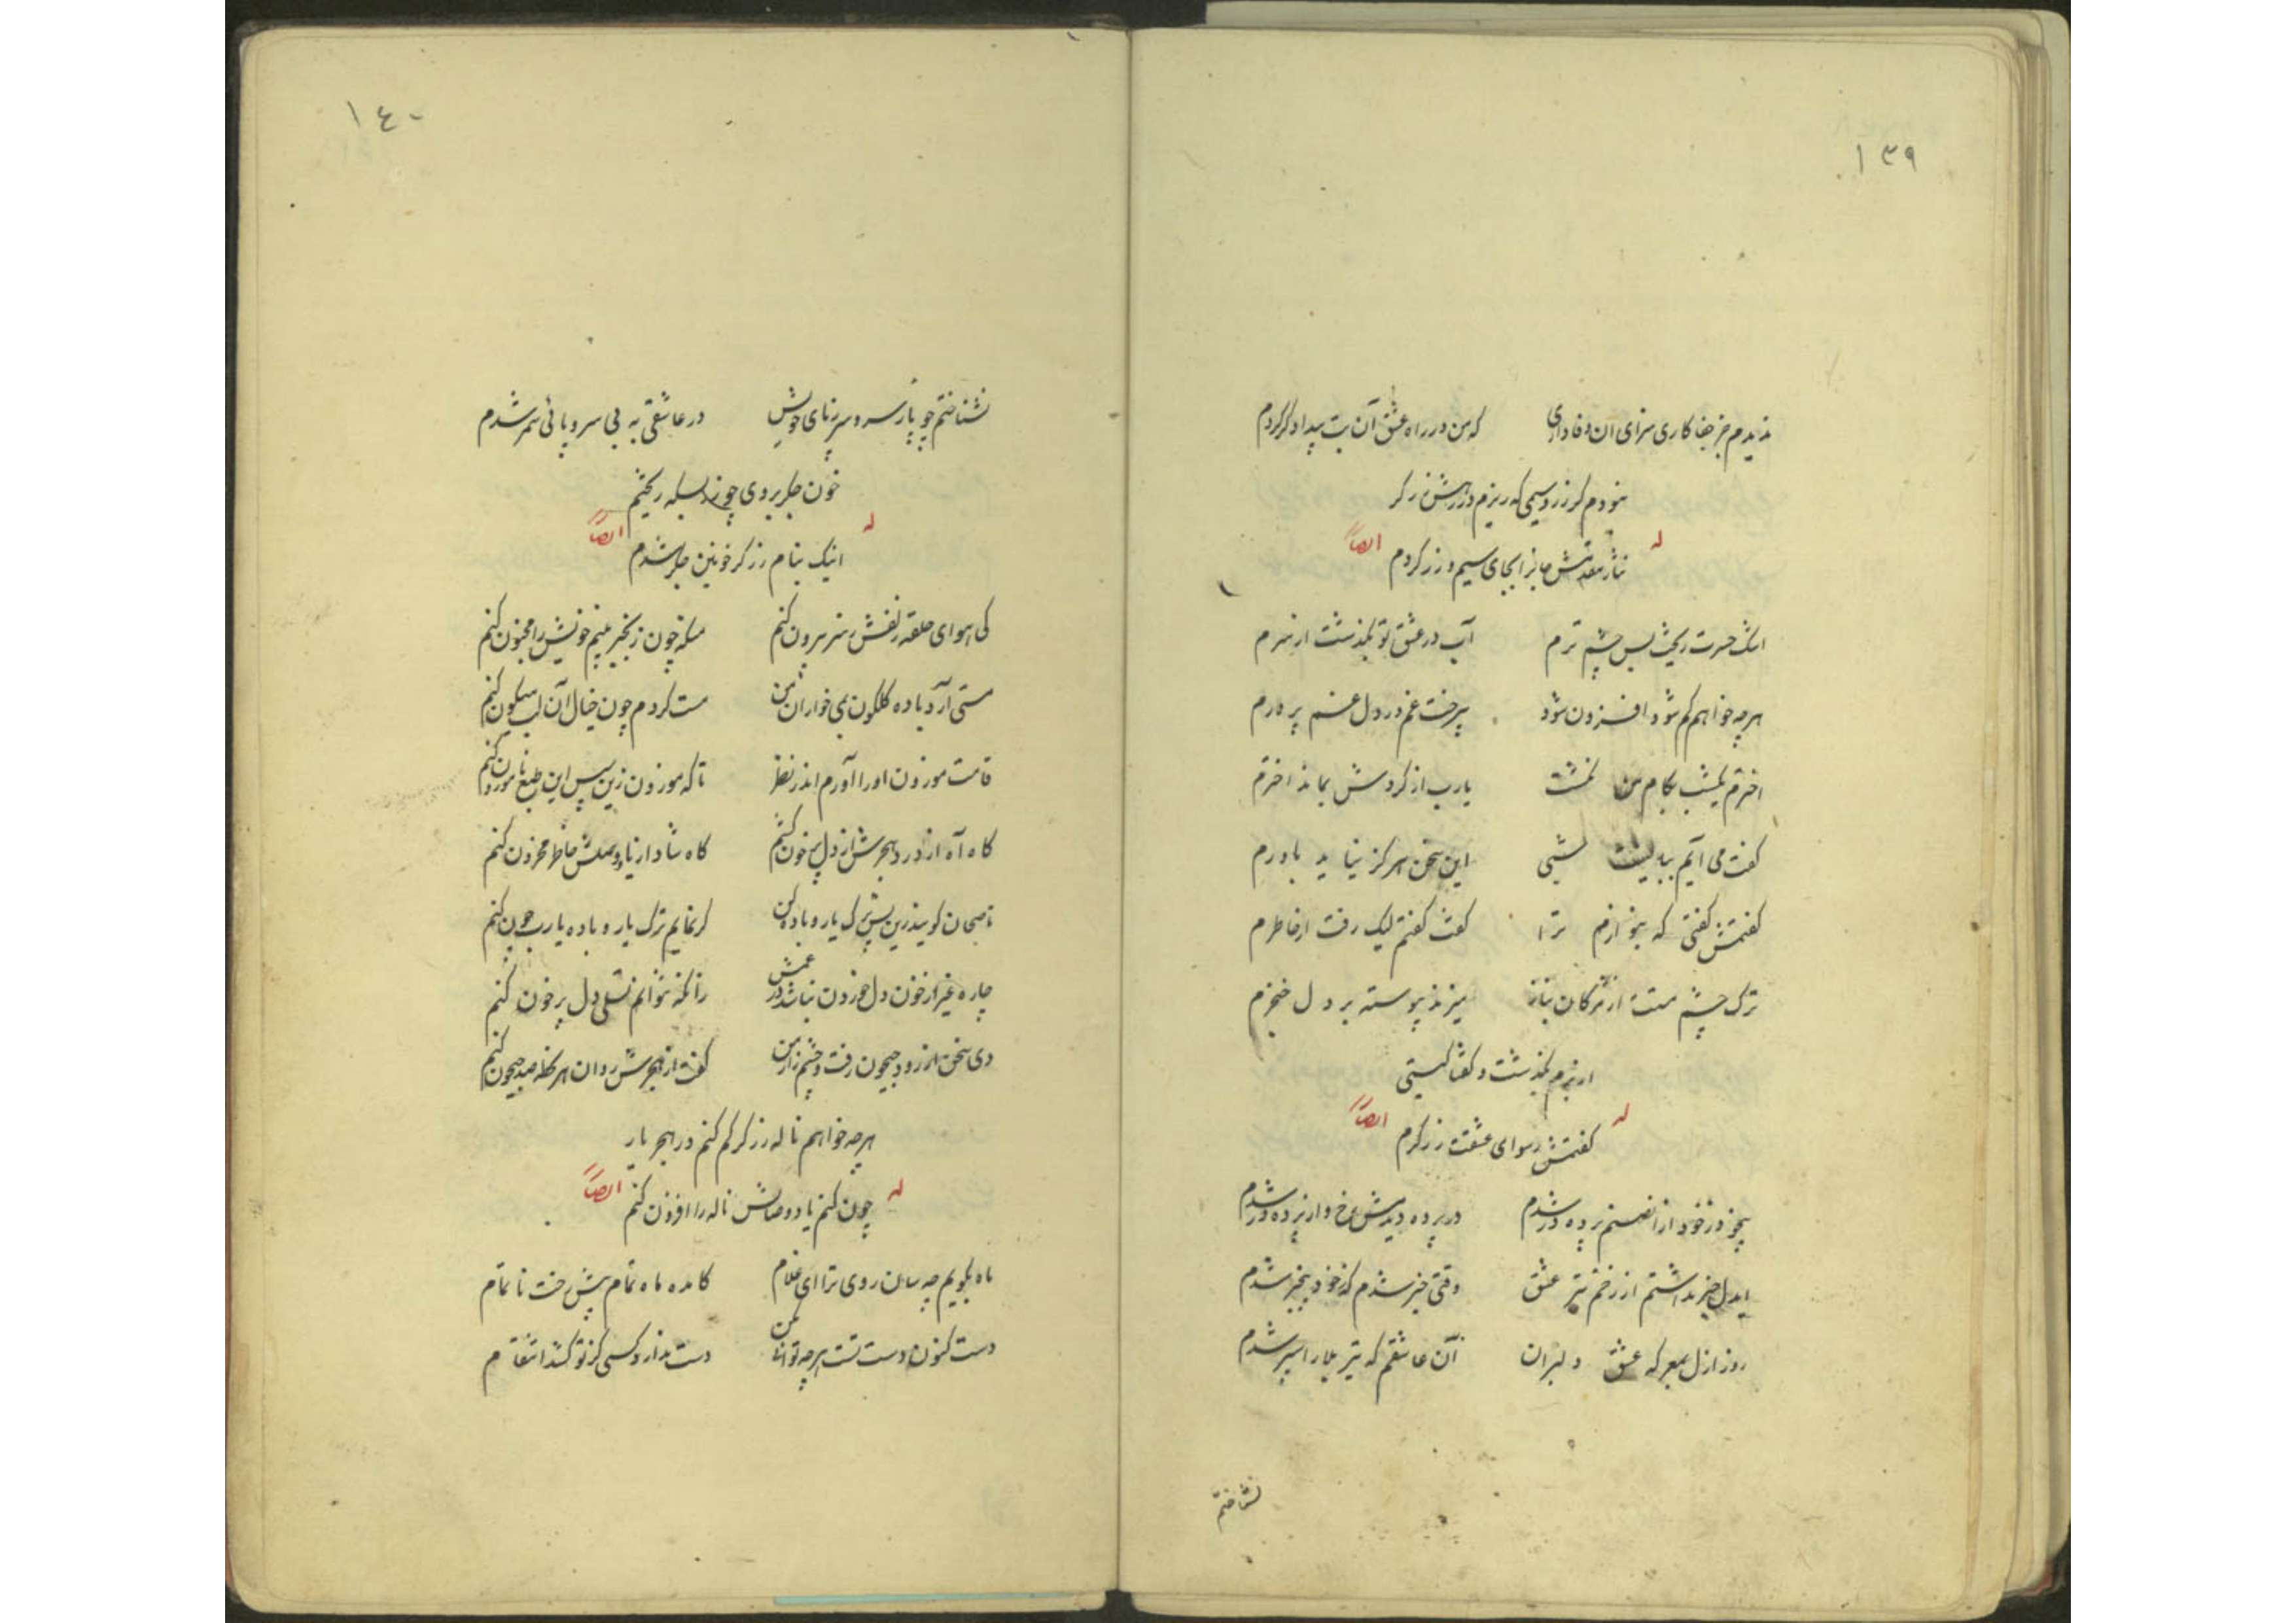 ١٣٩
ندیدم جز جفا کاری سزای آن وفاداری که من در راه عشق آن بت بیدادگر کردم
نبودم گر زر و سیمی که ریزم در رهش زرگر
نثار مقدمش جانرا بجای سیم و زر کردم
له ایضاً
اشک حسرت ریخت بس چشم ترم آب در عشق تو بگذشت از سرم
هرچه خواهم کم شود افزون شود بیرخت غم در دل غم پرورم
اخترم یکشب بکام من نگشت یارب از گردش بماند اخترم
گفت می آیم ببالینت شبی این سخن هرگز نیاید باورم
گفتمش گفتی که بنوازم ترا گفت گفتم لیک رفت از خاطرم
ترک چشم مستت از مژگان بناز میزند پیوسته بر دل خنجرم
از برم بگذشت و گفتا کیستی
گفتمش رسوای عشقت زرگرم
له ایضاً
بیخود ز خود از آن صنم پرده در شدم در پرده دیدمش رخ و از پرده در شدم
ایدل خبر نداشتم از زخم تیر عشق وقتی خبر شدم که ز خود بیخبر شدم
روز ازل بمعرکه عشق دلبران آن عاشقم که تیر بلا را سپر شدم
نشناختم
١٤٠
نشناختم چو پا ز سر و سر ز پای خویش در عاشقی به بی سر و پائی سمر شدم
خون جگر بروی چو زر بسکه ریختم
اینک بنام زرگر خونین جگر شدم
له ایضاً
کی هوای حلقه زلفش ز سر بیرون کنم منکه چون زنجیر بینم خویش را مجنون کنم
مستی آرد باده گلگون بمی خواران و من مست گردم چون خیال آن لب میگون کنم
قامت موزون او را آورم اندر نظر تا که موزون زین سپس این طبع ناموزون کنم
گاه آه از درد هجرش از دل پر خون کشم گاه شاد از یاد وصلش خاطر محزون کنم
ناصحان گویند زین پس ترک یار و باده کن گر نمایم ترک یار و باده یارب چون کنم
چاره غیر از خون دل خوردن نباشد در غمش زانکه نتوانم تسلی دل پر خون کنم
دی سخن از رود جیحون رفت و چشم زار من گفت از هجرش روان هر لحظه صد جیحون کنم
هرچه خواهم ناله زرگر کم کنم در هجر یار
چون کنم یاد وصالش ناله را افزون کنم
له ایضاً
ماه بگویم چه سان روی ترا ای غلام کامده ماه تمام پیش رخت ناتمام
دست کنون دست تست هرچه توانی بکن دست ندارد کسی کز تو کشد انتقام